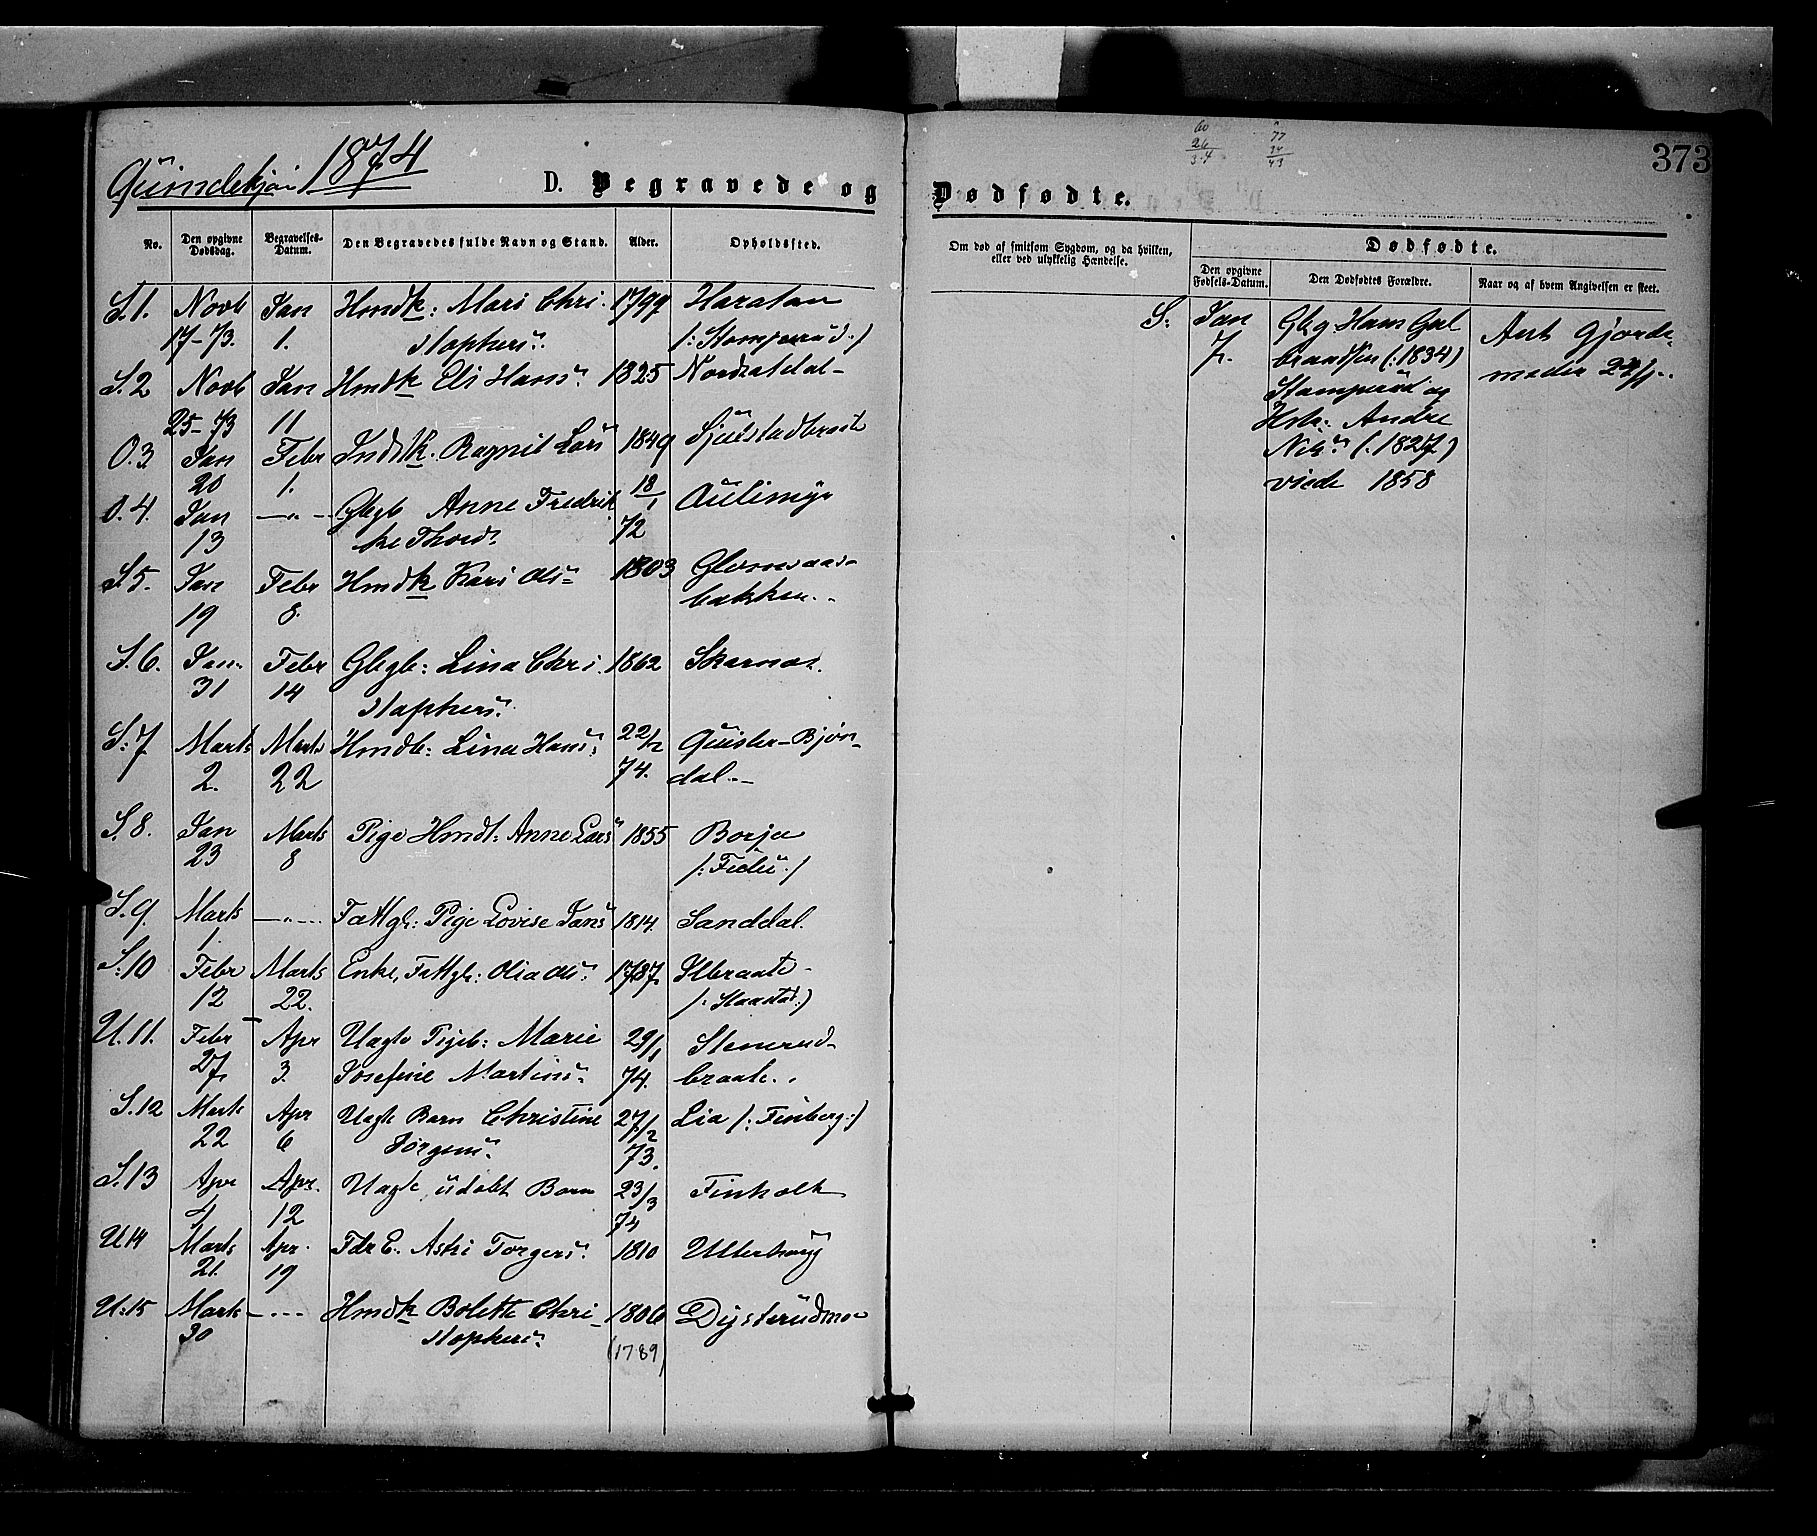 Qvindekjøn 1874
D. Begravede og
No.
Den opgivne Dødsdag.
Begravelses-Datum.
Den Begravedes fulde Navn og Stand.
Alder.
Opholdssted.
S. 1. Novb Jan Hmdk: Mari Chri- 1799 Haratan
17-73. 1. stophersd:
S. 2 Novb Jan Hmdk Eli Hansd: 1825
25-73 11
O. 3 Jan Febr Indstk. Ragnil Larsd 1849
20 1.
O. 4. Jan -"- Glegb Anne Fredrik 18/1
13 ke Thord: 72
S. 5. Jan Febr Hmdk Kari Olsd 1803 Glomsaas-
19 8. bakken..
S. 6. Jan. Febr Glegb: Lina Chri- 1862 Skarnæs.
31 14 stophersd:
S: 7 Marts Marts Hmdb: Lina Hansd: 22/2 Quisler-Bjørn-
2. 22 74. dal.
S. 8. Jan Marts Pige Hmdt: Anne Larsd 1855 Borja
23 8
S. 9 Marts -"- Fattgl: Pige Lovise Jansd 1814. Sanddal.
1.
S: 10 Febr Marts Enke, Fattgl: Olia Olsd: 1787.
12 22.
U. 11. Febr Apr Uagte Pigeb: Marie 29/1 Stenerud-
27. 3. Josefine Martinsd: 74. braate..
S. 12 Marts Apr Uagte Barn Christine 27/2 Lia (: Finberg:)
22 6 Jørgensd: 73.
S. 13 Apr Apr. Uagte, udøbt Barn 23/3 Finholt
4 12 74
U 14 Marts Apr. Fdr E. Astri Torgersd: 1810 Ullerhaug
21. 19
U: 15 Marts -"- Hmdk Bolette Chri- 1806 Dysterudmo
30 stophersd: (1789)
60
26
34
77
34
43
373
Dødfødte.
Om død af smitsom Sygdom, og da hvilken,
eller ved ulykkelig Hændelse.
Dødfødte.
Den opgivne Fødsels-Datum.
Den Dødfødtes Forældre.
Naar og af hvem Angivelsen er skeet.
S: Jan Gbg. Hans Gul Ant Gjorde-
7. brandsen (:1834) moder 24/1..
Stamperud og
Hstr: Andre
Nilsd (:1827)
viede 1858